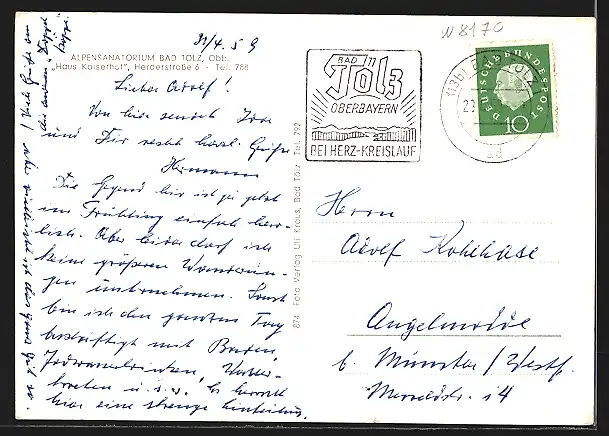 W 8170
22/4. 59
ALPENSANATORIUM BAD TÖLZ, Obb.
"Haus Kaiserhof", Herderstraße 6 - Tel. 788
Lieber Adolf!
Von hier sende ich Irm
und Dir recht herzl. Grüße
Hermann
Die Gegend hier ist ja jetzt
im Frühling einfach herr-
lich. Aber leider darf ich
keine größeren Wanderun-
gen unternehmen. Sonst
bin ich den ganzen Tag
beschäftigt mit Baden,
Jodwassertrinken,
u.s.w. Es herrscht
hier eine strenge
874 Foto Verlag Ull Kraus, Bad Tölz Tel. 792
BAD
Tölz
OBERBAYERN
BEI HERZ-KREISLAUF
BAD TÖLZ
DEUTSCHE BUNDESPOST
10
Herrn
Adolf Kohlhase
Angelmodde
b. Münster/Westf.